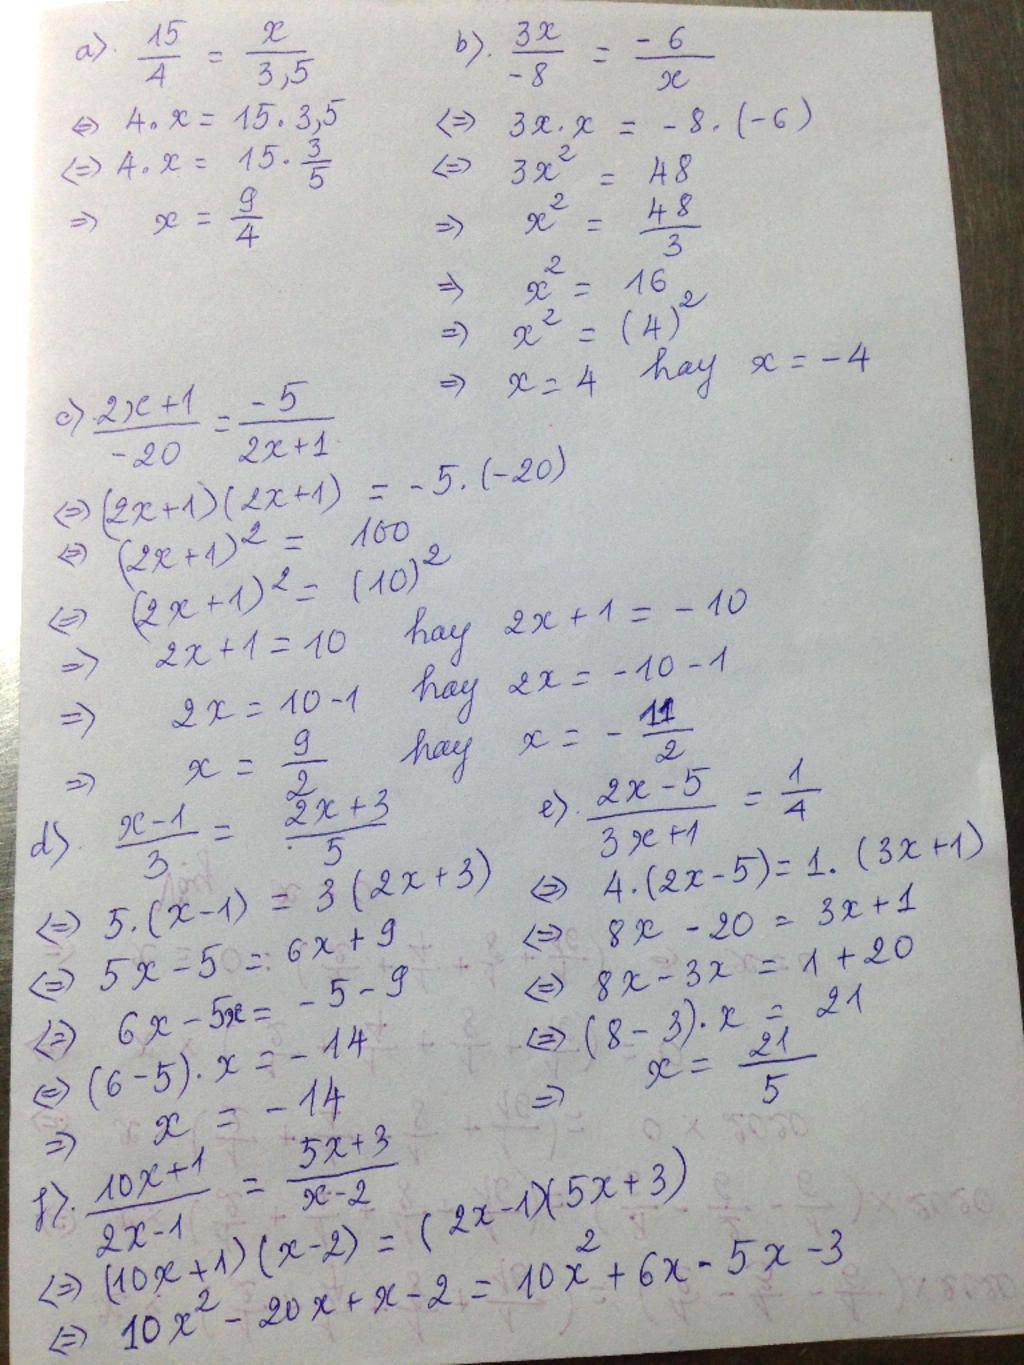 a). 15/4 = x/3,5
⇔ 4.x = 15.3,5
⇔ 4.x = 15.3/5
⇒ x = 9/4
b). 3x/-8 = -6/x
⇔ 3x.x = -8.(-6)
⇔ 3x² = 48
⇒ x² = 48/3
⇒ x² = 16
⇒ x² = (4)²
⇒ x = 4 hay x = -4
c). 2x+1/-20 = -5/2x+1
⇔ (2x+1)(2x+1) = -5.(-20)
⇔ (2x+1)² = 100
⇔ (2x+1)² = (10)²
⇒ 2x+1 = 10 hay 2x+1 = -10
⇒ 2x = 10-1 hay 2x = -10-1
⇒ x = 9/2 hay x = -11/2
d). x-1/3 = 2x+3/5
⇔ 5.(x-1) = 3(2x+3)
⇔ 5x-5 = 6x+9
⇔ 6x-5x = -5-9
⇔ (6-5).x = -14
⇒ x = -14
e). 2x-5/3x+1 = 1/4
⇔ 4.(2x-5) = 1.(3x+1)
⇔ 8x-20 = 3x+1
⇔ 8x-3x = 1+20
⇔ (8-3).x = 21
⇒ x = 21/5
f). 10x+1/2x-1 = 5x+3/x-2
⇔ (10x+1)(x-2) = (2x-1)(5x+3)
⇔ 10x² - 20x + x - 2 = 10x² + 6x - 5x - 3